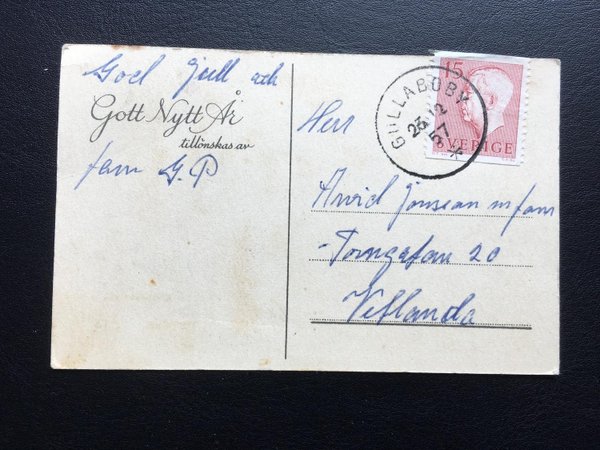 God Jull och
Gott Nytt År
tillönskas av
fam G.P
15
SVERIGE
GULLABOBY
23 12
57
Herr
Arvid Jonsson m fam
Torngatan 20
Vetlanda